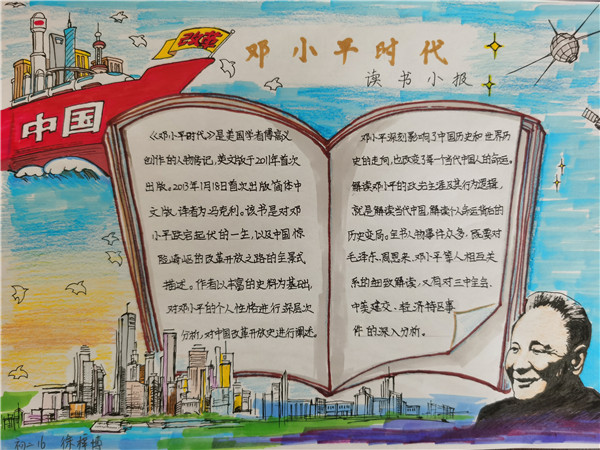 改革
中国
邓小平时代
读书小报
《邓小平时代》是美国学者傅高义
创作的人物传记,英文版于2011年首次
出版。2013年1月18日首次出版简体中
文版,译者为冯克利。该书是对邓
小平跌宕起伏的一生,以及中国惊
险崎岖的改革开放之路的全景式
描述。作者以丰富的史料为基础,
对邓小平的个人性格进行深层次
分析,对中国改革开放史进行阐述。
邓小平深刻影响了中国历史和世界历
史的走向,也改变了每一个当代中国人的命运。
解读邓小平的政治生涯及其行为逻辑,
就是解读当代中国,解读个人命运背后的
历史变局。全书人物事件众多,既要对
毛泽东、周恩来、邓小平等人相互关
系的细致解读,又有对三中全会、
中美建交、经济特区事
件的深入分析。
初二16 徐梓博